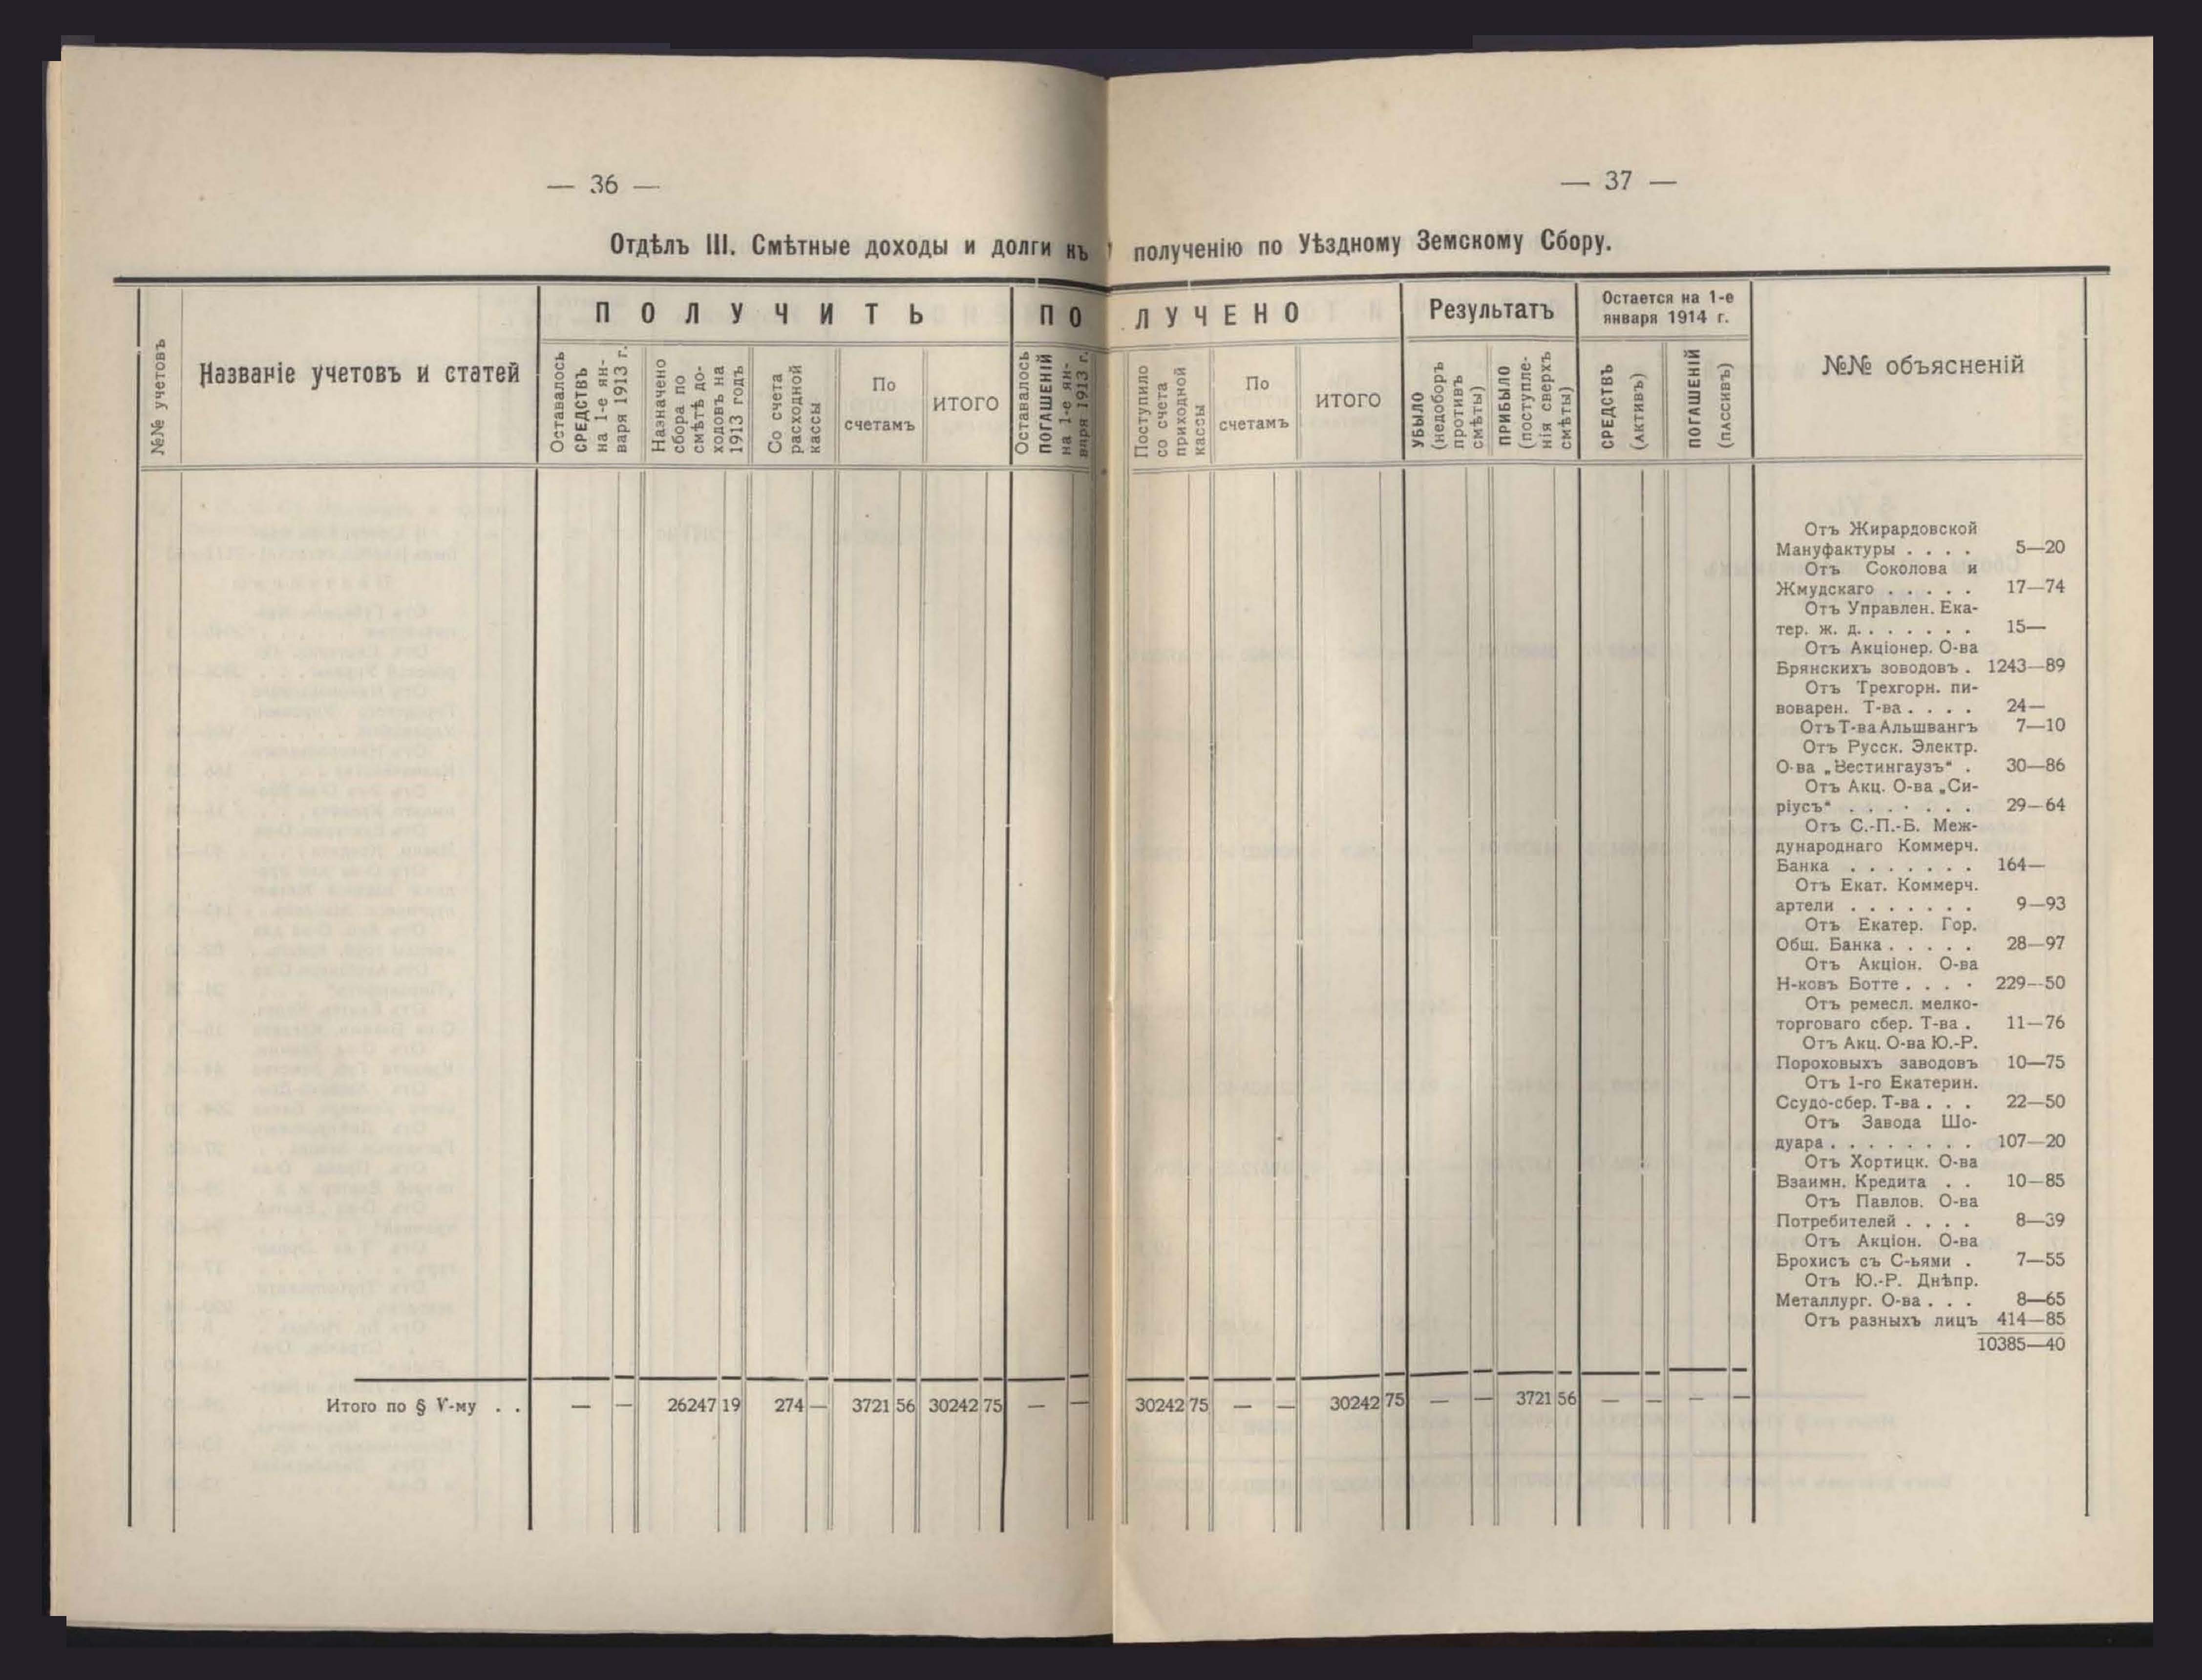 — 36 —
— 37 —
Отдѣлъ III. Смѣтные доходы и долги къ полученію по Уѣздному Земскому Сбору.
№№ учетовъ
Названіе учетовъ и статей
ПОЛУЧИТЬ
Оставалось
СРЕДСТВЪ
на 1-е ян-
варя 1913 г.
Назначено
сбора по
смѣтѣ до-
ходовъ на
1913 годъ
Со счета
расходной
кассы
По
счетамъ
ИТОГО
ПОЛУЧЕНО
Оставалось
ПОГАШЕНІЙ
на 1-е ян-
варя 1913 г.
Поступило
со счета
приходной
кассы
По
счетамъ
ИТОГО
Результатъ
УБЫЛО
(недоборъ
противъ
смѣты)
ПРИБЫЛО
(поступле-
нія сверхъ
смѣты)
Остается на 1-е
января 1914 г.
СРЕДСТВЪ
(АКТИВЪ)
ПОГАШЕНІЙ
(ПАССИВЪ)
№№ объясненій
Отъ Жирардовской
Мануфактуры . . . . 5—20
Отъ Соколова и
Жмудскаго . . . . . 17—74
Отъ Управлен. Ека-
тер. ж. д. . . . . . . 15—
Отъ Акціонер. О-ва
Брянскихъ зоводовъ . 1243—89
Отъ Трехгорн. пи-
воварен. Т-ва . . . . 24—
Отъ Т-ва Альшвангъ 7—10
Отъ Русск. Электр.
О-ва „Вестингаузъ“ . 30—86
Отъ Акц. О-ва „Си-
ріусъ“ . . . . . . . 29—64
Отъ С.-П.-Б. Меж-
дународнаго Коммерч.
Банка . . . . . . . 164—
Отъ Екат. Коммерч.
артели . . . . . . . 9—93
Отъ Екатер. Гор.
Общ. Банка . . . . . 28—97
Отъ Акціон. О-ва
Н-ковъ Ботте . . . . 229—50
Отъ ремесл. мелко-
торговаго сбер. Т-ва . 11—76
Отъ Акц. О-ва Ю.-Р.
Пороховыхъ заводовъ 10—75
Отъ 1-го Екатерин.
Ссудо-сбер. Т-ва . . . 22—50
Отъ Завода Шо-
дуара . . . . . . . . 107—20
Отъ Хортицк. О-ва
Взаимн. Кредита . . 10—85
Отъ Павлов. О-ва
Потребителей . . . . 8—39
Отъ Акціон. О-ва
Брохисъ съ С-ьями . 7—55
Отъ Ю.-Р. Днѣпр.
Металлург. О-ва . . . 8—65
Отъ разныхъ лицъ 414—85
10385—40
Итого по § V-му . . — — 26247 19 274 — 3721 56 30242 75 — — 30242 75 — — 30242 75 — — 3721 56 — — — —